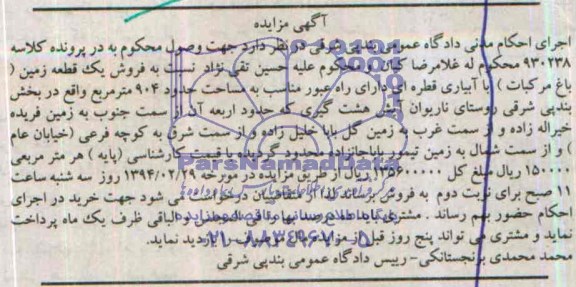 آگهی مزایده
اجرای احکام مدنی دادگاه عمومی بندپی شرقی در نظر دارد جهت وصول محکوم به در پرونده کلاسه
۹۳۰۲۳۸ محکوم له غلامرضا کیانی محکوم علیه حسین تقی نژاد نسبت به فروش یک قطعه زمین (
باغ مرکبات ) با آبیاری قطره ای دارای راه عبور مناسب به مساحت حدود ۹۰۴ مترمربع واقع در بخش
بندپی شرقی روستای ناریوان آتش هشت گیری که حدود اربعه آن از سمت جنوب به زمین فریده
خیراله زاده و از سمت غرب به زمین گل بابا خلیل زاده و از سمت شرق به کوچه فرعی (خیابان عام
) و از سمت شمال به زمین تیمور باباجانزاده محدود گردیده با قیمت کارشناسی (پایه ) هر متر مربعی
۱۵۰۰۰۰ ریال مبلغ کل ۱۳۵۶۰۰۰۰۰ ریال از طریق مزایده در مورخه ۱۳۹۴/۰۲/۲۹ روز سه شنبه ساعت
۱۱ صبح برای نوبت دوم به فروش برساند لذا از متقاضیان درخواست می شود جهت خرید در اجرای
احکام حضور بهم رساند . مشتری باید الباقی ظرف یک ماه پرداخت
نماید و مشتری می تواند پنج روز قبل از مزایده بازدید نماید.
محمد محمدی برنجستانکی - رییس دادگاه عمومی بندپی شرقی
ParsNamadData
۰۲۱-۸۸۳۴۹۶۷۰-۵